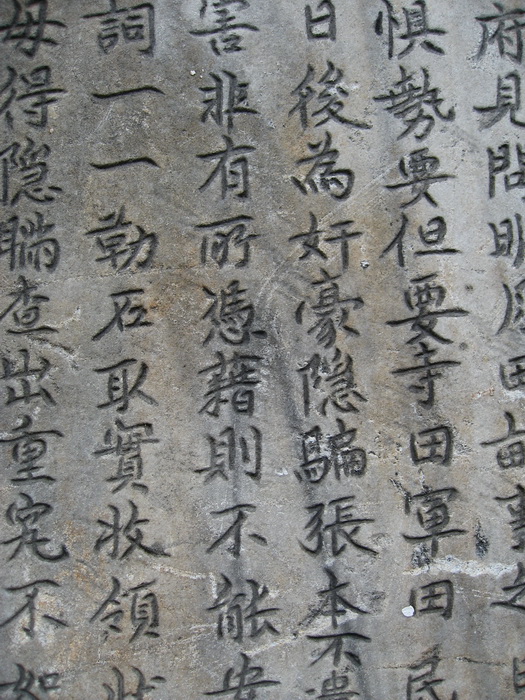 府見問明原田畝事
惧勢要但要寺田軍田民
日後為奸豪隐騙張本不
害非有所憑藉則不能安
詞一一勒石取實收領狀
毋得隐瞞查出重究不恕